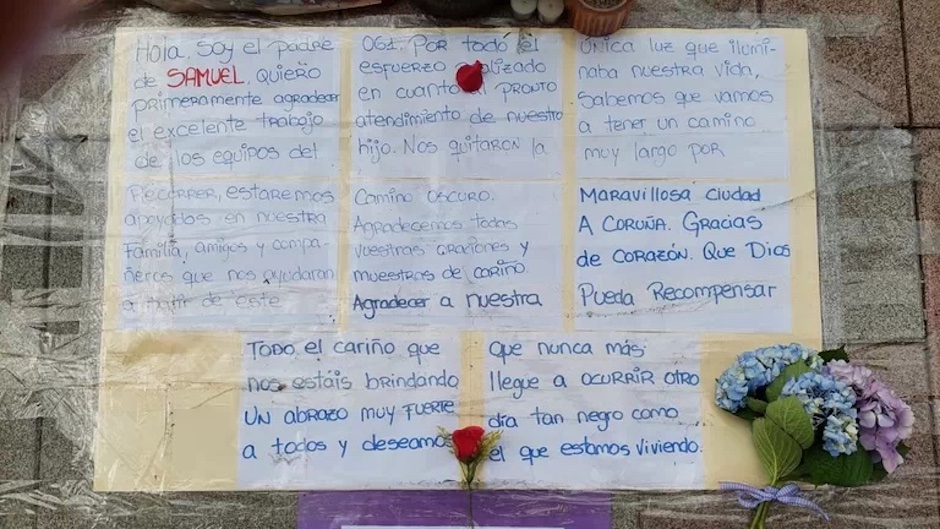 Hola. Soy el padre
de SAMUEL. Quiero
primeramente agradecer
el excelente trabajo
de los equipos del
061. Por todo el
esfuerzo
en cuanto al pronto
atendimiento de nuestro
hijo. Nos quitaron la
única luz que ilumi-
naba nuestra vida,
Sabemos que vamos
a tener un camino
muy largo por
Recorrer, estaremos
apoyados en nuestra
Familia, amigos y compa-
ñeros que nos ayudaran
a partir de este
Camino oscuro.
Agradecemos todas
vuestras oraciones y
muestras de cariño.
Agradecer a nuestra
Maravillosa ciudad
A Coruña. Gracias
de corazón. Que Dios
Pueda Recompensar
Todo el cariño que
nos estáis brindando
Un abrazo muy fuerte
a todos y deseamos
que nunca más
llegue a ocurrir otro
día tan negro como
el que estamos viviendo.